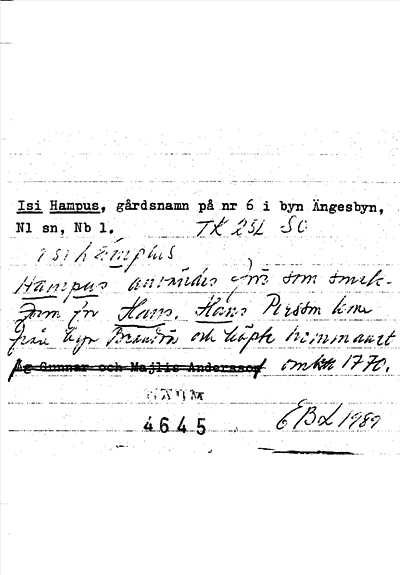 Isi Hampus, gårdsnamn på nr 6 i byn Ängesbyn,
Nl sn, Nb l. TK 25L SO
isi hampus
Hampus användes förr som smek-
form för Hans. Hans Persson kom
från byn Brändön och köpte hemmanet
Äg Gunnar och Majlis Andersson omkr 1770.
DAUM
4645
EBL 1989